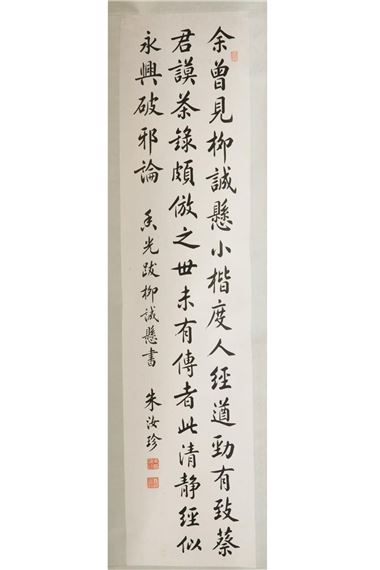 余曾見柳誠懸小楷度人經遒勁有致蔡
君謨茶錄頗倣之世未有傳者此清靜經似
永興破邪論 香光跋柳誠懸書 朱汝珍